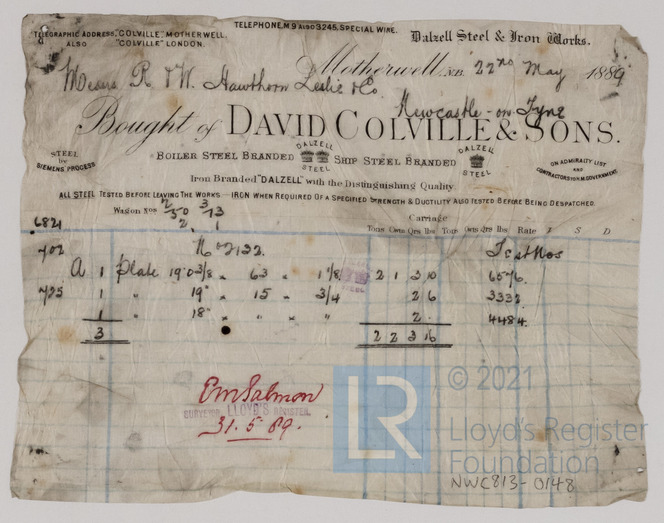 TELEPHONE, M9 ALSO 3245, SPECIAL WIRE.
TELEGRAPHIC ADDRESS, "COLVILLE," MOTHERWELL.
ALSO "COLVILLE" LONDON.
Dalzell Steel & Iron Works.
Motherwell, N.B. 22nd May 1889
Messrs R & W. Hawthorn Leslie & Co.
Newcastle-on-Tyne
Bought of DAVID COLVILLE & SONS.
STEEL by SIEMENS PROCESS
BOILER STEEL BRANDED DALZELL STEEL SHIP STEEL BRANDED DALZELL STEEL
ON ADMIRALTY LIST AND CONTRACTORS FOR H.M. GOVERNMENT
Iron Branded "DALZELL" with the Distinguishing Quality.
ALL STEEL TESTED BEFORE LEAVING THE WORKS IRON WHEN REQUIRED OF A SPECIFIED STRENGTH & DUCTILITY ALSO TESTED BEFORE BEING DESPATCHED.
Wagon Nos 2/50 3/13
2, 1
Carriage
6821
Tons Cwts Qrs lbs Tons Cwts Qrs lbs Rate £ S D
702 No 2132. Test Nos
A 1 Plate 19'0 3/8 " 63 " 1 1/8 2 1 3 10 6576.
725 1 " 19" " 15 " 3/4 2 6 3332
1 " 18" " " " " 2. 4484.
3 2 2 3 16
E M Salmon
SURVEYOR LLOYD'S REGISTER.
31.5.89.
LR © 2021
Lloyd's Register
Foundation
NWC813-0148